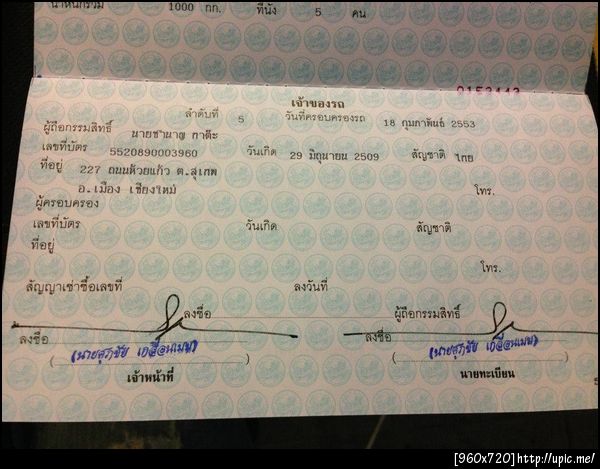 น้ำหนักรวม 1000 กก. ที่นั่ง 5 คน
เจ้าของรถ
ลำดับที่ 5 วันที่ครอบครองรถ 18 กุมภาพันธ์ 2553
ผู้ถือกรรมสิทธิ์ นายชานาญ กาติ๊ะ
เลขที่บัตร 5520890003960 วันเกิด 29 มิถุนายน 2509 สัญชาติ ไทย
ที่อยู่ 227 ถนนห้วยแก้ว ต.สุเทพ
อ.เมือง เชียงใหม่ โทร.
ผู้ครอบครอง
เลขที่บัตร วันเกิด สัญชาติ
ที่อยู่
โทร.
สัญญาเช่าซื้อเลขที่ ลงวันที่
ลงชื่อ ผู้ถือกรรมสิทธิ์
ลงชื่อ ลงชื่อ
(นายสุภชัย) (นายสุภชัย)
เจ้าหน้าที่ นายทะเบียน
[960x720]http://upic.me/